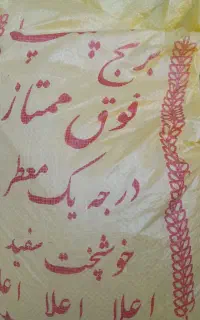 برنج
فوق ممتاز
درجه یک معطر
خوشپخت سفید
اعلا اعلا